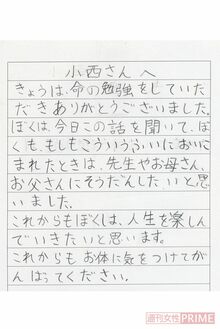 小西さんへ
きょうは、命の勉強をしていた
だきありがとうございました。
ぼくは、今日この話を聞いて、ぼ
くももしもこういうふいにおいこ
まれたときは、先生やお母さん、
お父さんにそうだんしたいと思
いました。
これからもぼくは、人生を楽しん
でいきたいと思います。
これからもお体に気をつけてが
んばってください。
週刊女性PRIME